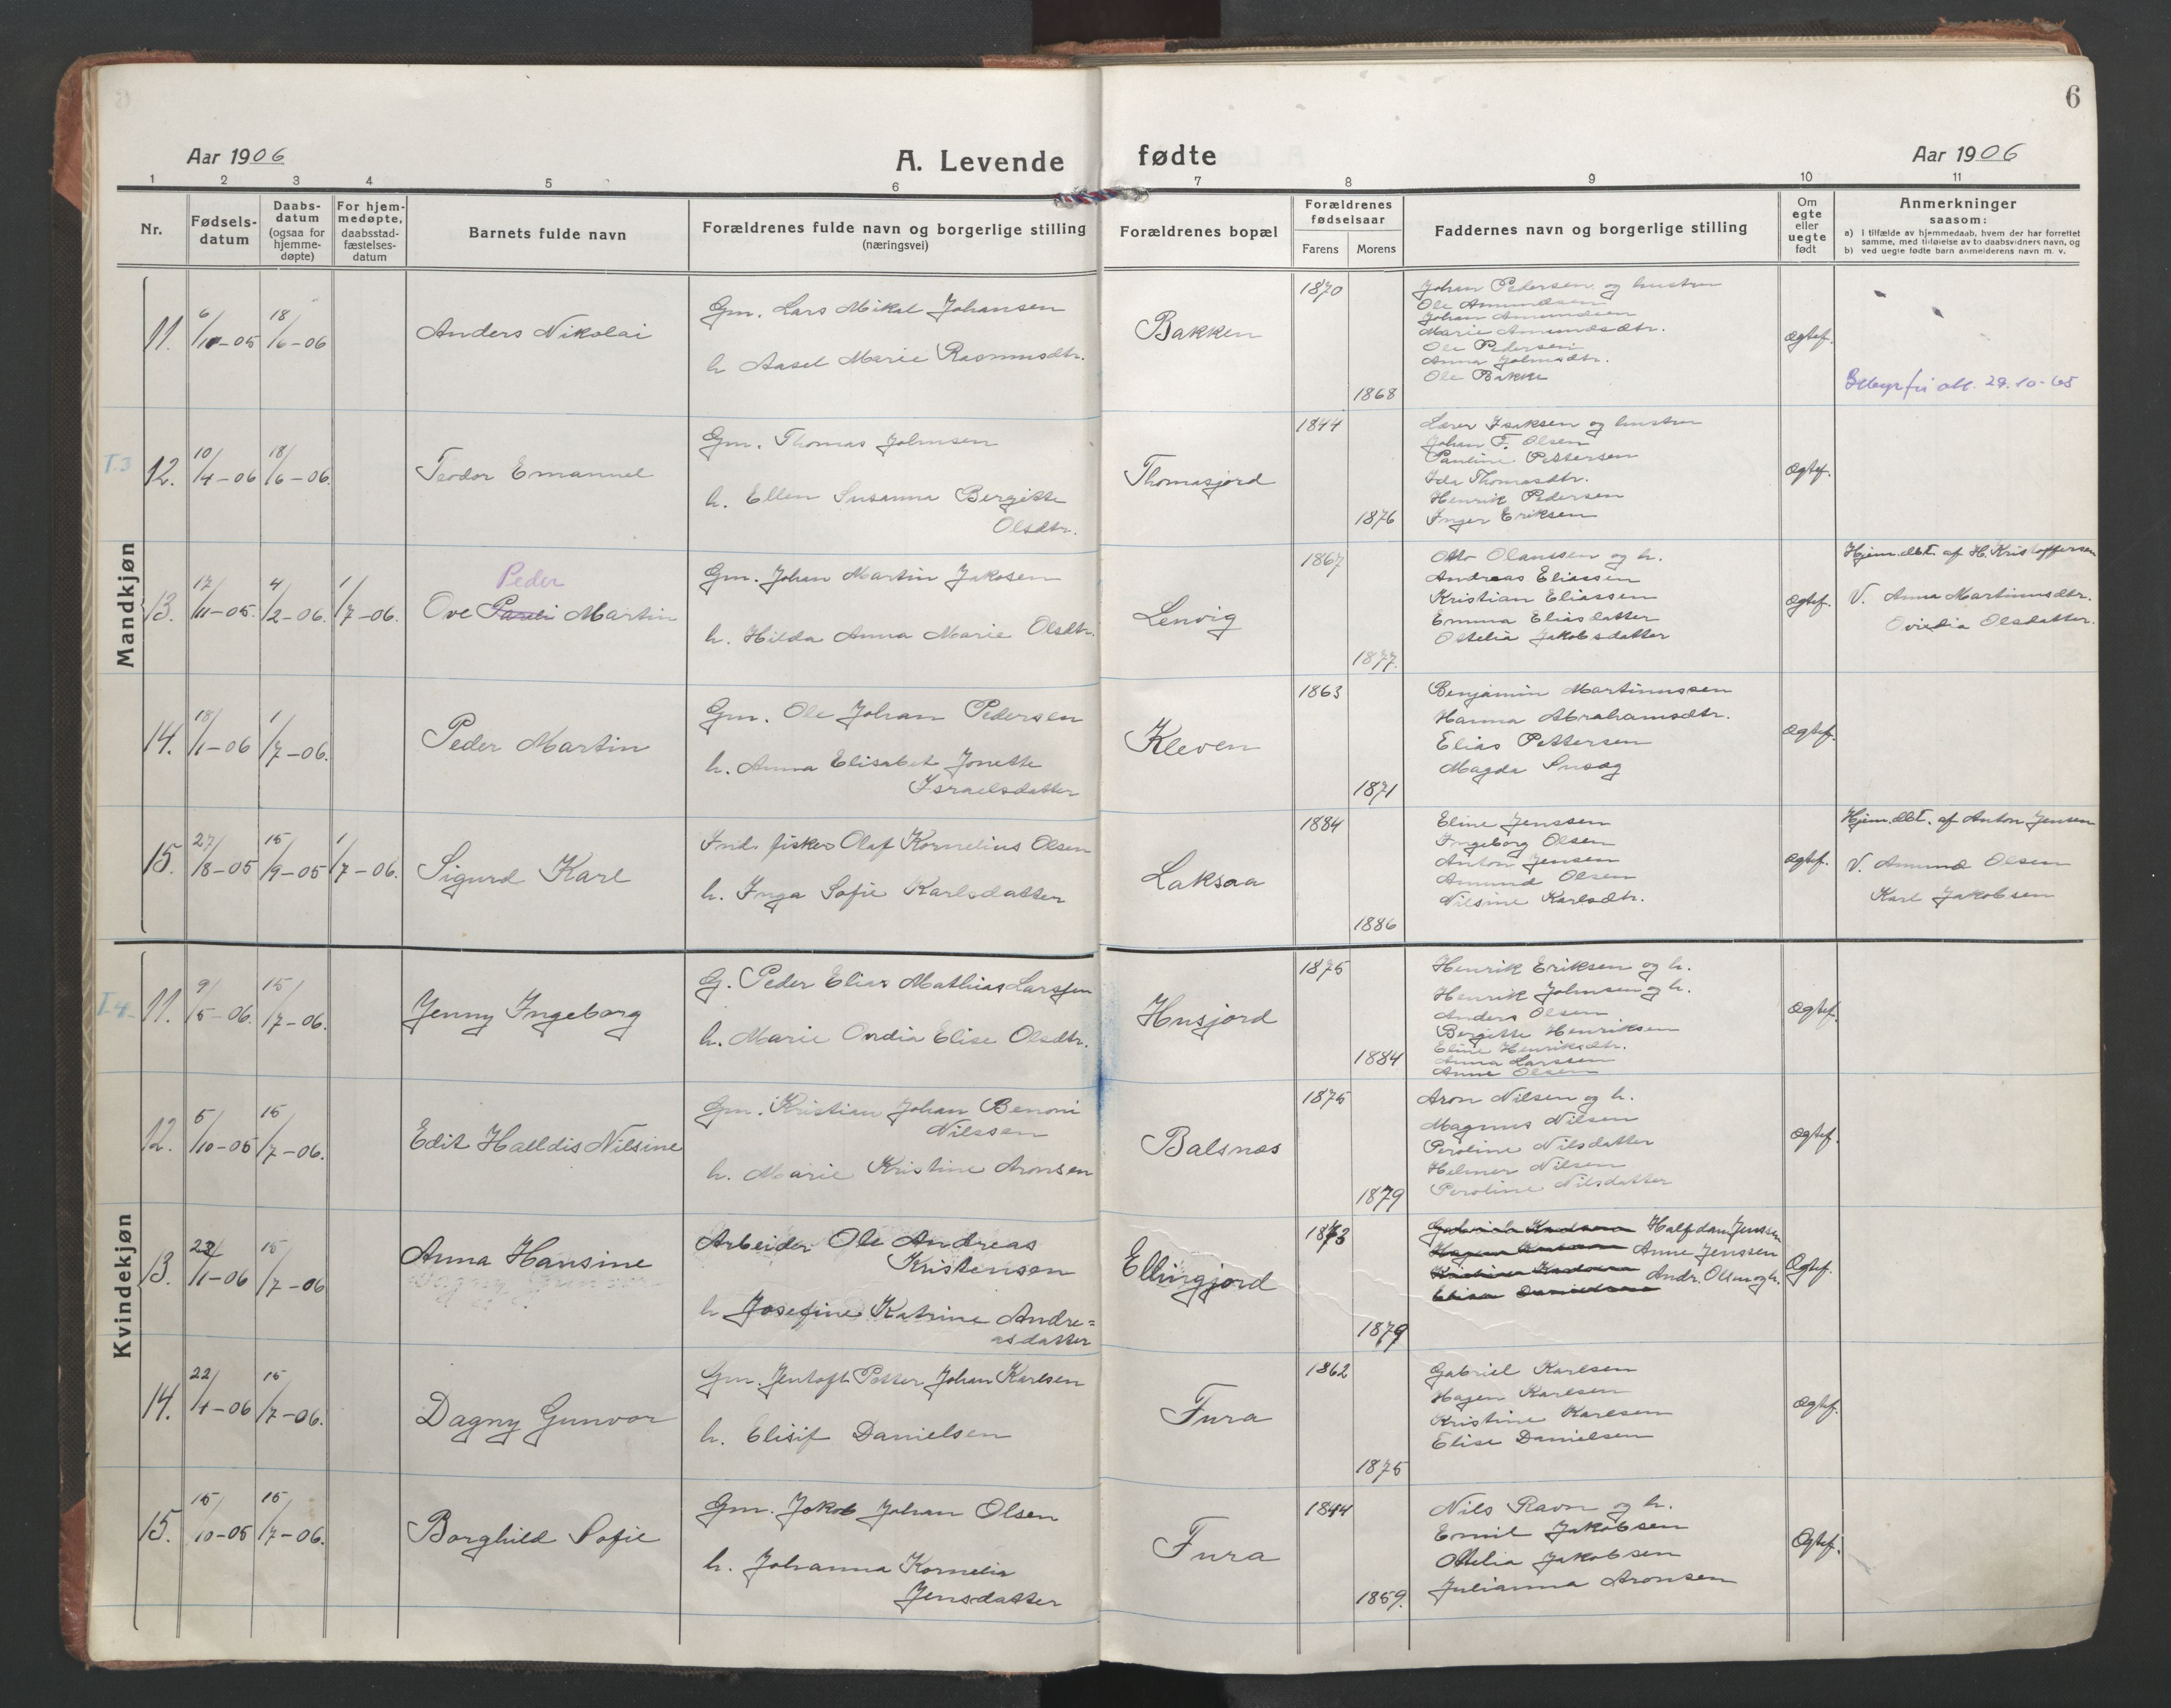 6
Aar 1906
A. Levende fødte
Aar 1906
1 2 3 4 5 6 7 8 9 10 11
Nr.
Fødsels-
datum
Daabs-
datum
(ogsaa for
hjemme-
døpte)
For hjem-
medøpte,
daabsstad-
fæstelses-
datum
Barnets fulde navn
Forældrenes fulde navn og borgerlige stilling
(næringsvei)
Forældrenes bopæl
Forældrenes
fødselsaar
Farens
Morens
Faddernes navn og borgerlige stilling
Om
egte
eller
uegte
født
Anmerkninger
saasom:
a) I tilfælde av hjemmedaab, hvem der har forrettet
samme, med tilføielse av to daabsvidners navn, og
b) ved uegte fødte barn anmelderens navn m. v.
Mandkjøn
11.
6/10-05
18/6-06
Anders Nikolai
Gm. Lars Mikal Johansen
h Aasel Marie Rasmusdtr.
Bakken
1870
1868
Johan Pedersen og hustru
Ole Amundsen
Johan Amundsen
Marie Amundsdtr.
Ole Pedersen
Anna Johnsdtr.
Ole Bakke
ægtef.
29.10-65
T.3
12.
10/4-06
18/6-06.
Teodor Emanuel
Gm. Thomas Johnsen
h. Ellen Susanna Bergitte
Olsdtr.
Thomasjord
1844
1876
Lærer Isaksen og hustru
Johan F. Olsen
Pauline Pettersen
Ida Thomasdtr.
Henrik Pedersen
Inger Eriksen
ægtef.
13.
17/11-05
4/2-06.
1/7-06.
Peder
Ove Martin
Gm. Johan Martin Jakosen
h. Hilda Anna Marie Olsdtr.
Lenvig
1867
1877.
Otto Olaussen og h.
Andreas Eliassen
Kristian Eliassen
Emma Eliasdatter
Ottelia Jakobsdatter
ægtef.
Hjem.dbt. af H. Kristoffersen
V. Anna Martinusdtr.
Ovidia Olsdatter.
14.
18/1-06
1/7-06.
Peder Martin
Gm. Ole Johan Pedersen
h. Anna Elisabet Jonette
Israelsdatter
Kleven
1863
1871
Benjamin Martinussen
Hanna Abrahamsdtr.
Elias Pettersen
Magda
ægtef.
15.
27/8-05
15/9-05
1/7-06.
Sigurd Karl
Ind. fisker Olaf Kornelius Olsen
h. Inga Sofie Karlsdatter
Laksaa
1884
1886
Eline Jenssen
Ingeborg Olsen
Anton Jensen
Amund Olsen
Nilsine Karlsdtr.
ægtef.
Hjem.dbt. af Anton Jensen
V. Amund Olsen
Karl Jakobsen
Kvindekjøn
T.4.
11.
9/5-06.
15/7-06.
Jenny Ingeborg
G. Peder Elias Mathias Larssen
h. Marie Ovidia Elise Olsdtr.
Husjord
1875
1884
Henrik Eriksen og h.
Henrik Johnsen og h.
Anders Olsen
Bergitte Henriksen
Eline Henriksdtr.
Anna Larssen
Anne Olsen
ægtef.
12.
5/10-05
15/7-06.
Edit Halldis Nilsine
Gm. Kristian Johan Benoni
Nilssen
h. Marie Kristine Aronsen
Balsnæs
1875
1879
Aron Nilsen og h.
Magnus Nilsen
Peroline Nilsdatter
Helmer Nilsen
Peroline Nilsdatter
ægtef.
13.
/1-06
15/7-06
Anna Hansine
Arbeider Ole Andreas
Kristensen
h Josefine Katrine Andre=
asdatter
Ellingjord
1873
1879
Gabriel Karlsen Halfdan Jenssen
Hagen Karlsen Anne Jenssen
Kristine Karlsen Andr. Olsen og h.
Elise Danielsen
Ægtef.
14.
22/4-06
15/7-06.
Dagny Gunvor
Gm. Jentoft Petter Johan Karlsen
h. Elisif Danielsen
Fura
1862
1875
Gabriel Karlsen
Hagen Karlsen
Kristine Karlsen
Elise Danielsen
ægtef.
15.
15/10-05
15/7-06.
Borghild Sofie
Gm. Jakob Johan Olsen
h. Johanna Kornelia
Jensdatter
Fura
1844
1859.
Nils Ravn og h.
Emil Jakobsen
Otelia Jakobsen
Julianna Aronsen
Ægtef.